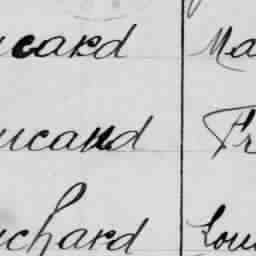 ucard Ma
ucard Fr
uchard Lou